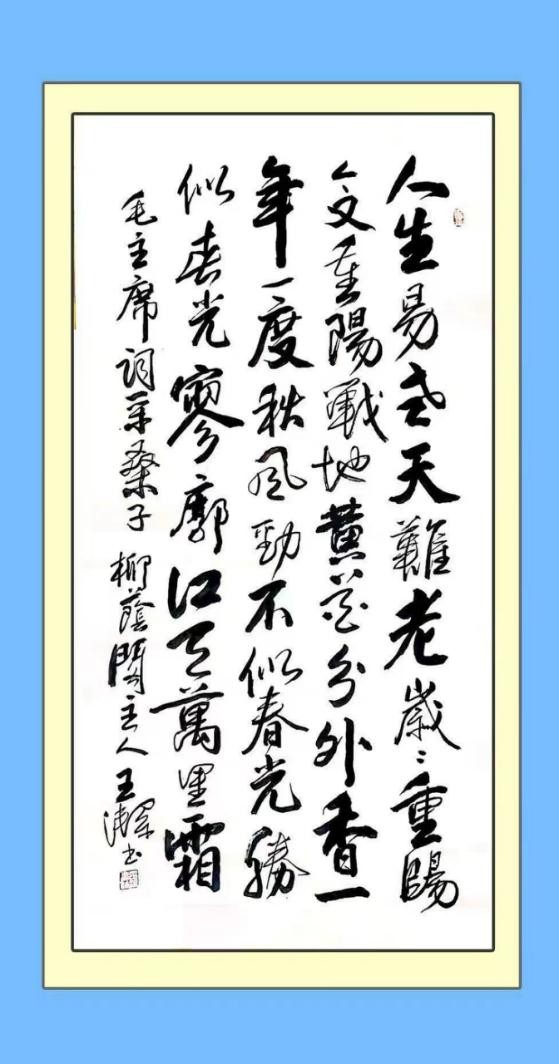 人生易老天難老歲々重陽
今又重陽戰地黄花分外香一
年一度秋風勁不似春光勝
似春光寥廓江天萬里霜
毛主席詞采桑子 柳蔭閣主人王書